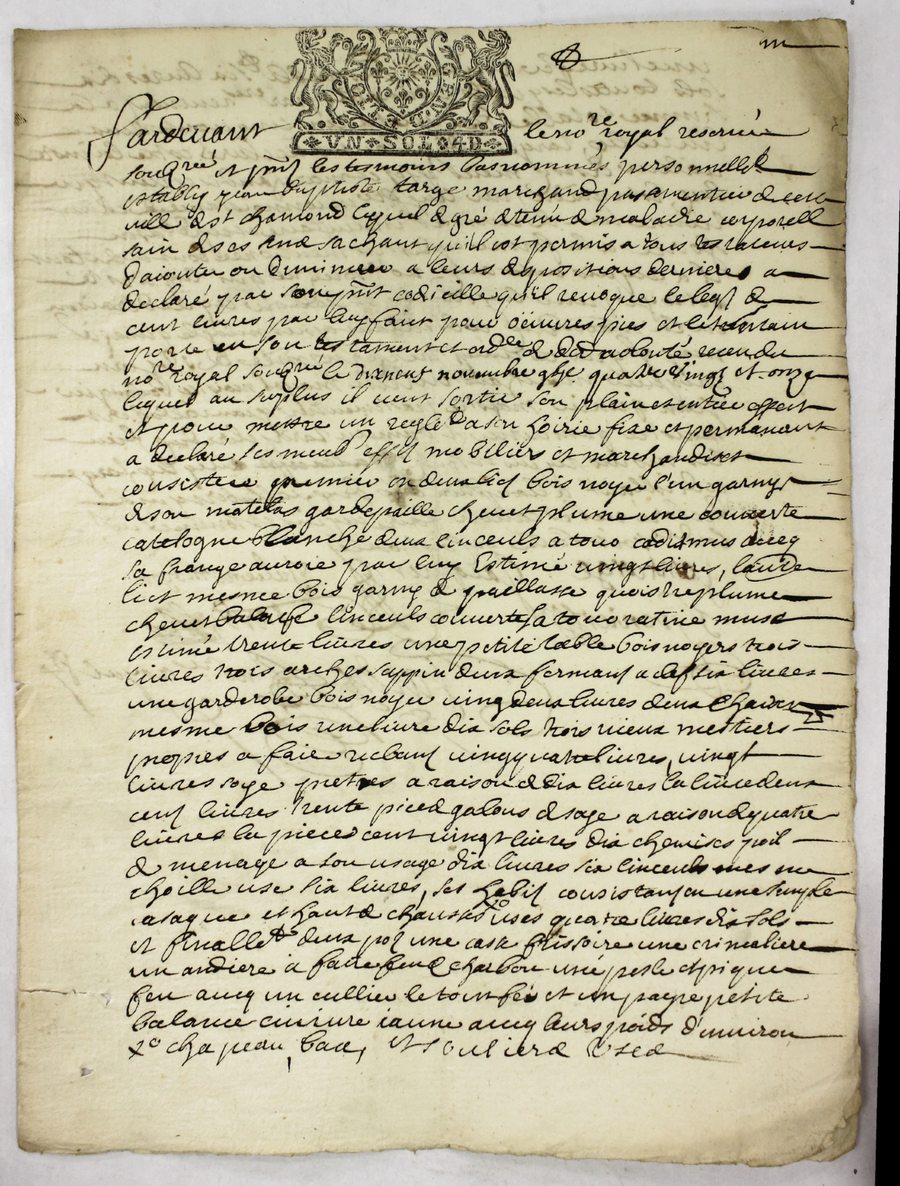 GEN. D
VN • SOL • 4D •
Pardevant le no.re royal reservé
soubz.né et p.nt les tesmoins bas nommés personnellet
estably Jean Baptiste Large marchand passementier de cette
ville de St chamond lequel de gré detenu de maladie corporell
sain de ses sens sachant qu'il est permis a tous testateurs
d'aiouter ou diminuer a leurs dispositions dernieres a
declaré par son p.nt codicille qu'il revoque le legt de
cent livres par luy fait pour oeuvres pies et
porté en son testament et ord.ce de der.e volonté receu du
no.re royal soubz.né le dixneuf novembre quatre vingt et onze
lequel au surplus il veut sortir son plain et entier effect
et pour mettre un regle a son hoirie fixe et permanant
a declaré ses meub. effets mobiliers et marchandises
consister premier en deux licts bois noyer l'un garny
de son matelas gardepaille chevet plume une couverte
catelogne blanche deux linceuls a tour cadis musc avecq
sa frange aurore par luy Estimé vingt livres, l'autre
lict mesme bois garny de paillasse plume
chevet linceuls couverte sa tour ratine musc
estimé trente livres une petite table bois noyers trois
livres trois arches sappin deux fermant a clef six livres
une garderobe bois noyer vingdeux livres deux chaires
mesme bois une livre dix sols trois vieux mestiers
propres a faire rubans vingquatre livres, vingt
livres soye prettes a raison de dix livres la livre deux
cent livres trente pieces galons de soye a raison de quatre
livres la piece cent vingt livres dix chemises poil
de menage a son usage dix livres six linceuls mesme
thoille usé six livres, ses habis consistant en une
casaque et haut de chausses usés quatre livres dix sols
et finallet deux pot une casse frisoire une crimaliere
un andier a faire feu de charbon une pesle et pique
feu avecq un cullier le tout fer et un payre petite
balance cuivre iaune avecq leurs poids d'environ
x.o chapeau, bas, et souliers usés